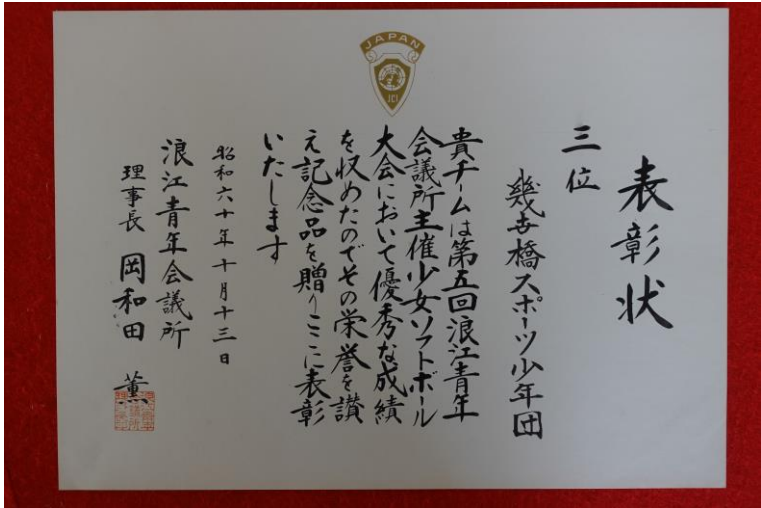 JAPAN
JCI
表彰状
三位
幾世橋スポーツ少年団
貴チームは第五回浪江青年
会議所主催少女ソフトボール
大会において優秀な成績
を収めたのでその栄誉を讃
え記念品を贈りここに表彰
いたします
昭和六十年十月十三日
浪江青年会議所
理事長 岡和田 薫